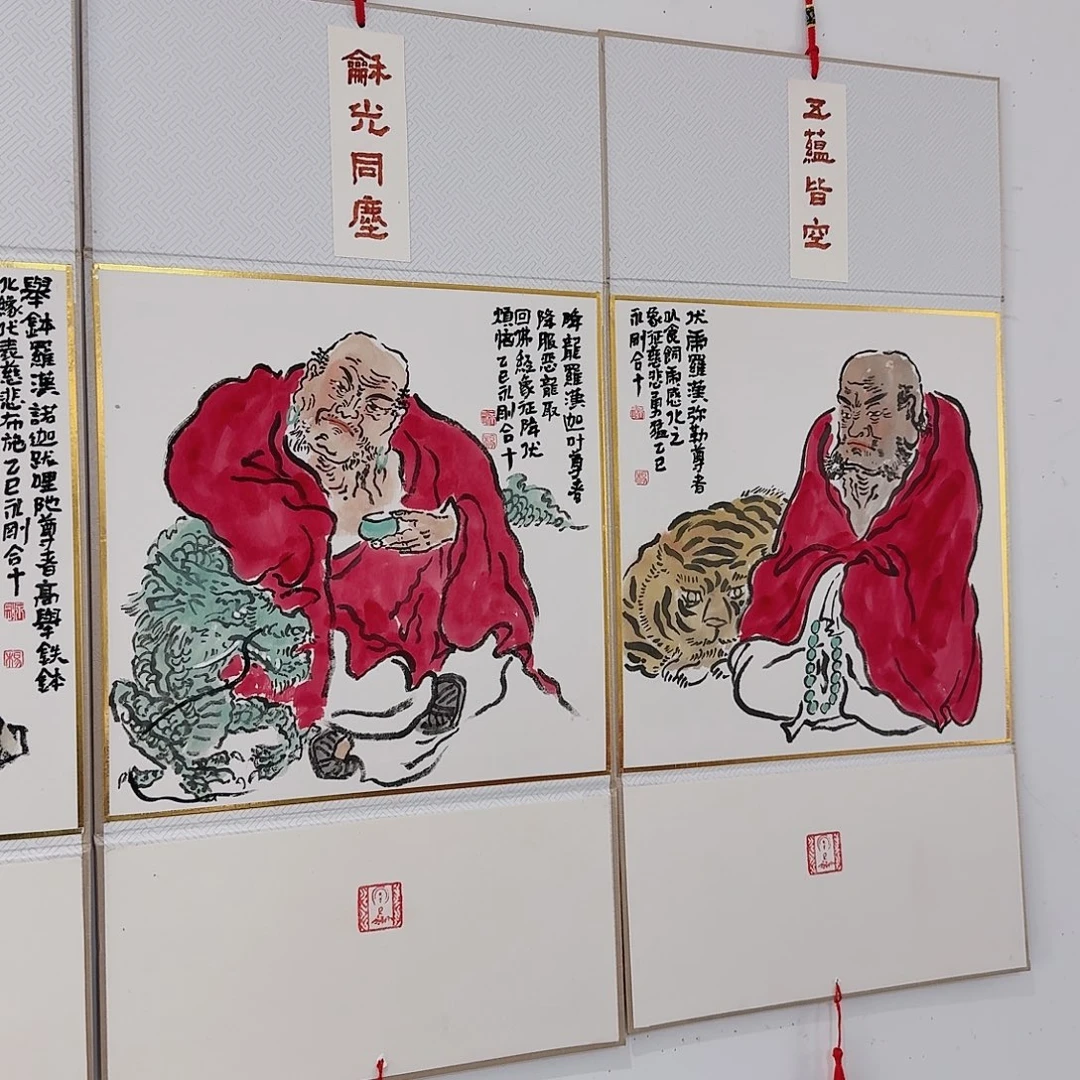 龢光同塵
五蘊皆空
降龍羅漢迦叶尊者
降服恶龍取
回佛經象征降伏
煩惱乙巳永剛合十
伏虎羅漢弥勒尊者
以食飼虎感化之
象征慈悲勇猛乙巳
永剛合十
舉鉢羅漢諾迦跋哩陀尊者高舉鉄鉢
化緣代表慈悲布施乙巳永剛合十